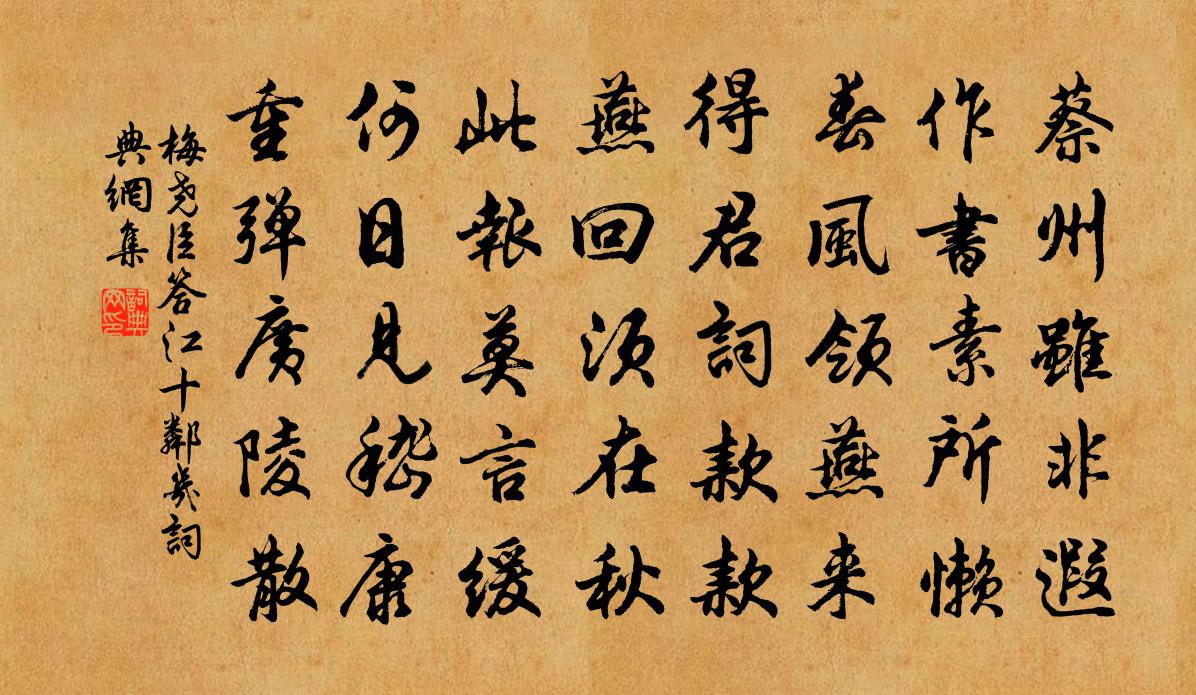 蔡州雖非遐
作書素所懶
春風領燕来
得君詞款款
燕回須在秋
此報莫言緩
何日見嵇康
重彈廣陵散
梅堯臣答江十鄰幾詞
典網集
詞典網印